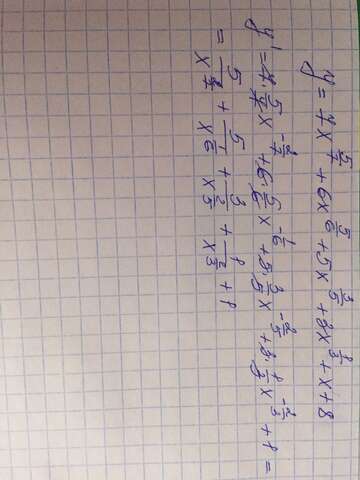 y = 7x^{5/7} + 6x^{5/6} + 5x^{3/5} + 3x^{1/3} + x + 8
y' = 7·5/7 x^{-2/7} + 6·5/6 x^{-1/6} + 5·3/5 x^{-2/5} + 3·1/3 x^{-2/3} + 1 =
= 5/x^{2/7} + 5/x^{1/6} + 3/x^{2/5} + 1/x^{2/3} + 1